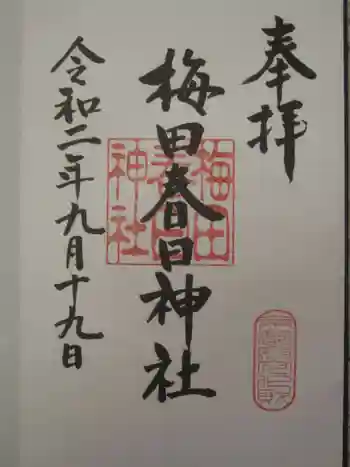 奉拝
梅田春日神社
令和二年九月十九日
梅田
春日
神社